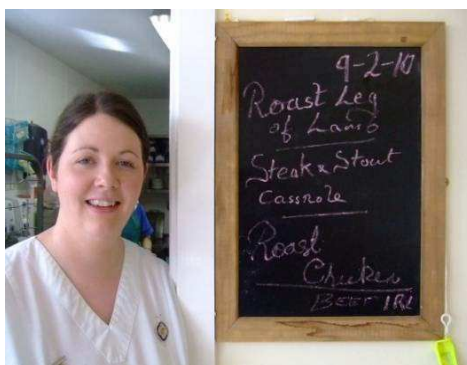 9-2-10
Roast Leg
of Lamb
Steak & Stout
Casserole
Roast
Chicken
BEEF IRL